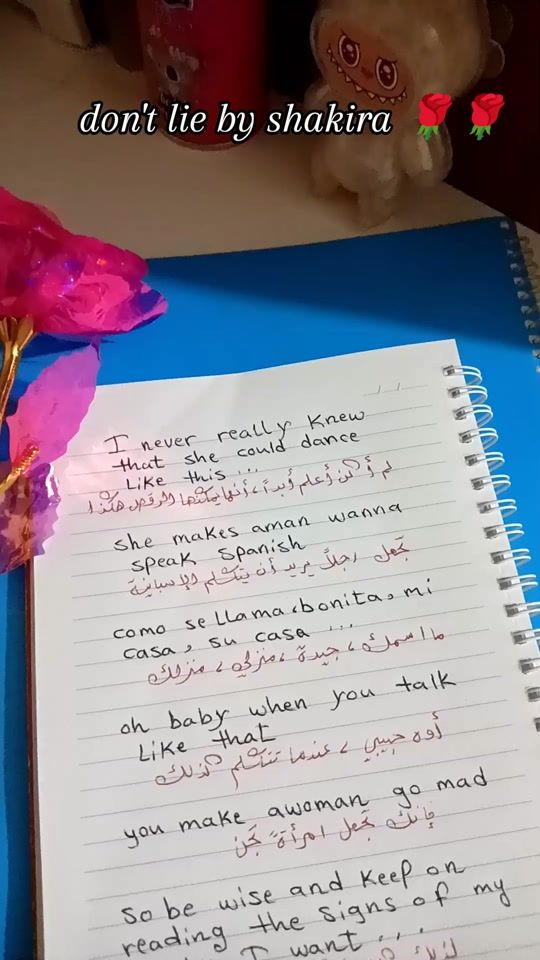 don't lie by shakira 🌹🌹
I never really knew
that she could dance
Like this...
لم أكن أعلم أبداً، أنها يمكنها الرقص هكذا
she makes aman wanna
speak spanish
تجعل رجلاً يريد أن يتكلم الإسبانية
como se llama, bonita, mi
casa, su casa ...
ما اسمك، جيدة، منزلي، منزلك
oh baby when you talk
Like that
أوه حبيبي، عندما تتكلم كذلك
you make awoman go mad
فإنك تجعل امرأة تجن
so be wise and keep on
reading the signs of my
I want ...